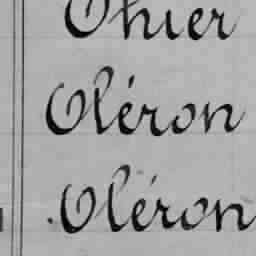 Ohier
Oléron
Oléron